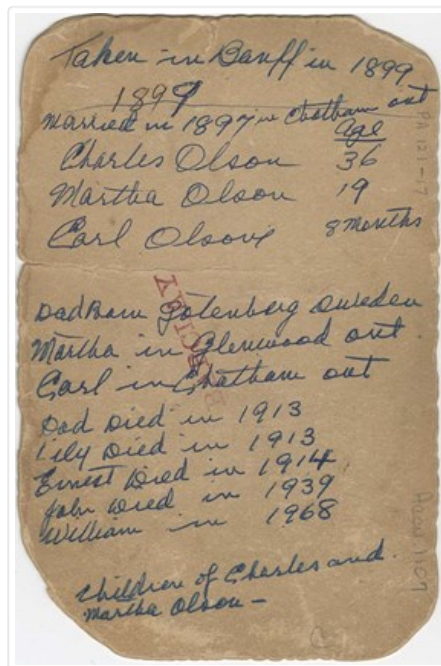 Taken in Banff in 1899
1899
Married in 1897 in Chatham ont
Age
Charles Olson 36
Martha Olson 19
Carl Olson 8 Months
Dad Born Gotenberg Sweden
Martha in Glenwood ont
Carl in Chatham ont
Dad Died in 1913
Lily Died in 1913
Ernest Died in 1914
John Died in 1939
William in 1968
Children of Charles and
Martha Olson -
PA 121-17